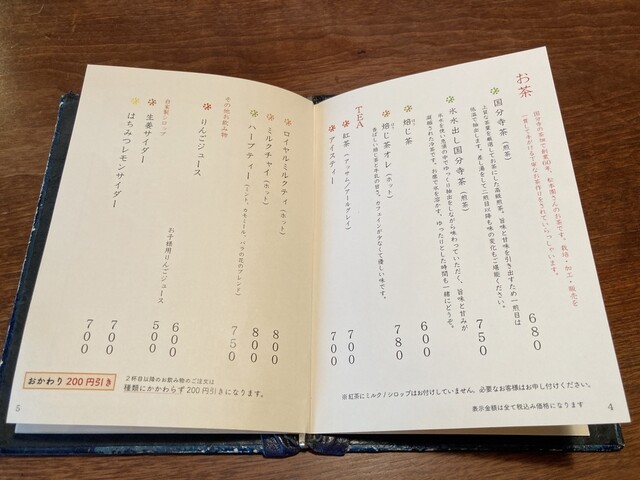 お茶
国分寺の茶畑で創業60年、松本園さんのお茶です。栽培・加工・販売を
一貫して手がける丁寧なお茶作りをされていらっしゃいます。
国分寺茶（煎茶）
680
上質な茶葉を厳選してお茶にした高級煎茶。旨味と甘味を引き出すため一煎目は
低温で抽出します。差し湯をして二煎目以降も味の変化もご堪能ください。
氷水出し国分寺茶（煎茶）
750
氷水を使い急須の中でゆっくり抽出をしながら味わっていただく、旨味と甘みが
凝縮された冷茶です。お席で氷を溶かす、ゆったりとした時間も一緒にどうぞ。
焙じ茶
600
焙じ茶オレ（ホット）
780
香ばしい焙じ茶と牛乳の甘さ。カフェインが少なくて優しい味です。
TEA
紅茶（アッサム／アールグレイ）
700
アイスティー
700
※紅茶にミルク / シロップはお付けしていません、必要なお客様はお申し付けください。
表示金額は全て税込み価格になります
4
ロイヤルミルクティ（ホット）
800
ミルクチャイ（ホット）
800
ハーブティー（ミント、カモミール、バラの花のブレンド）
750
その他お飲み物
りんごジュース
600
お子様用りんごジュース
500
自家製シロップ
生姜サイダー
700
はちみつレモンサイダー
700
おかわり 200 円引き
2杯目以降のお飲み物のご注文は
種類にかかわらず 200 円引きになります。
5